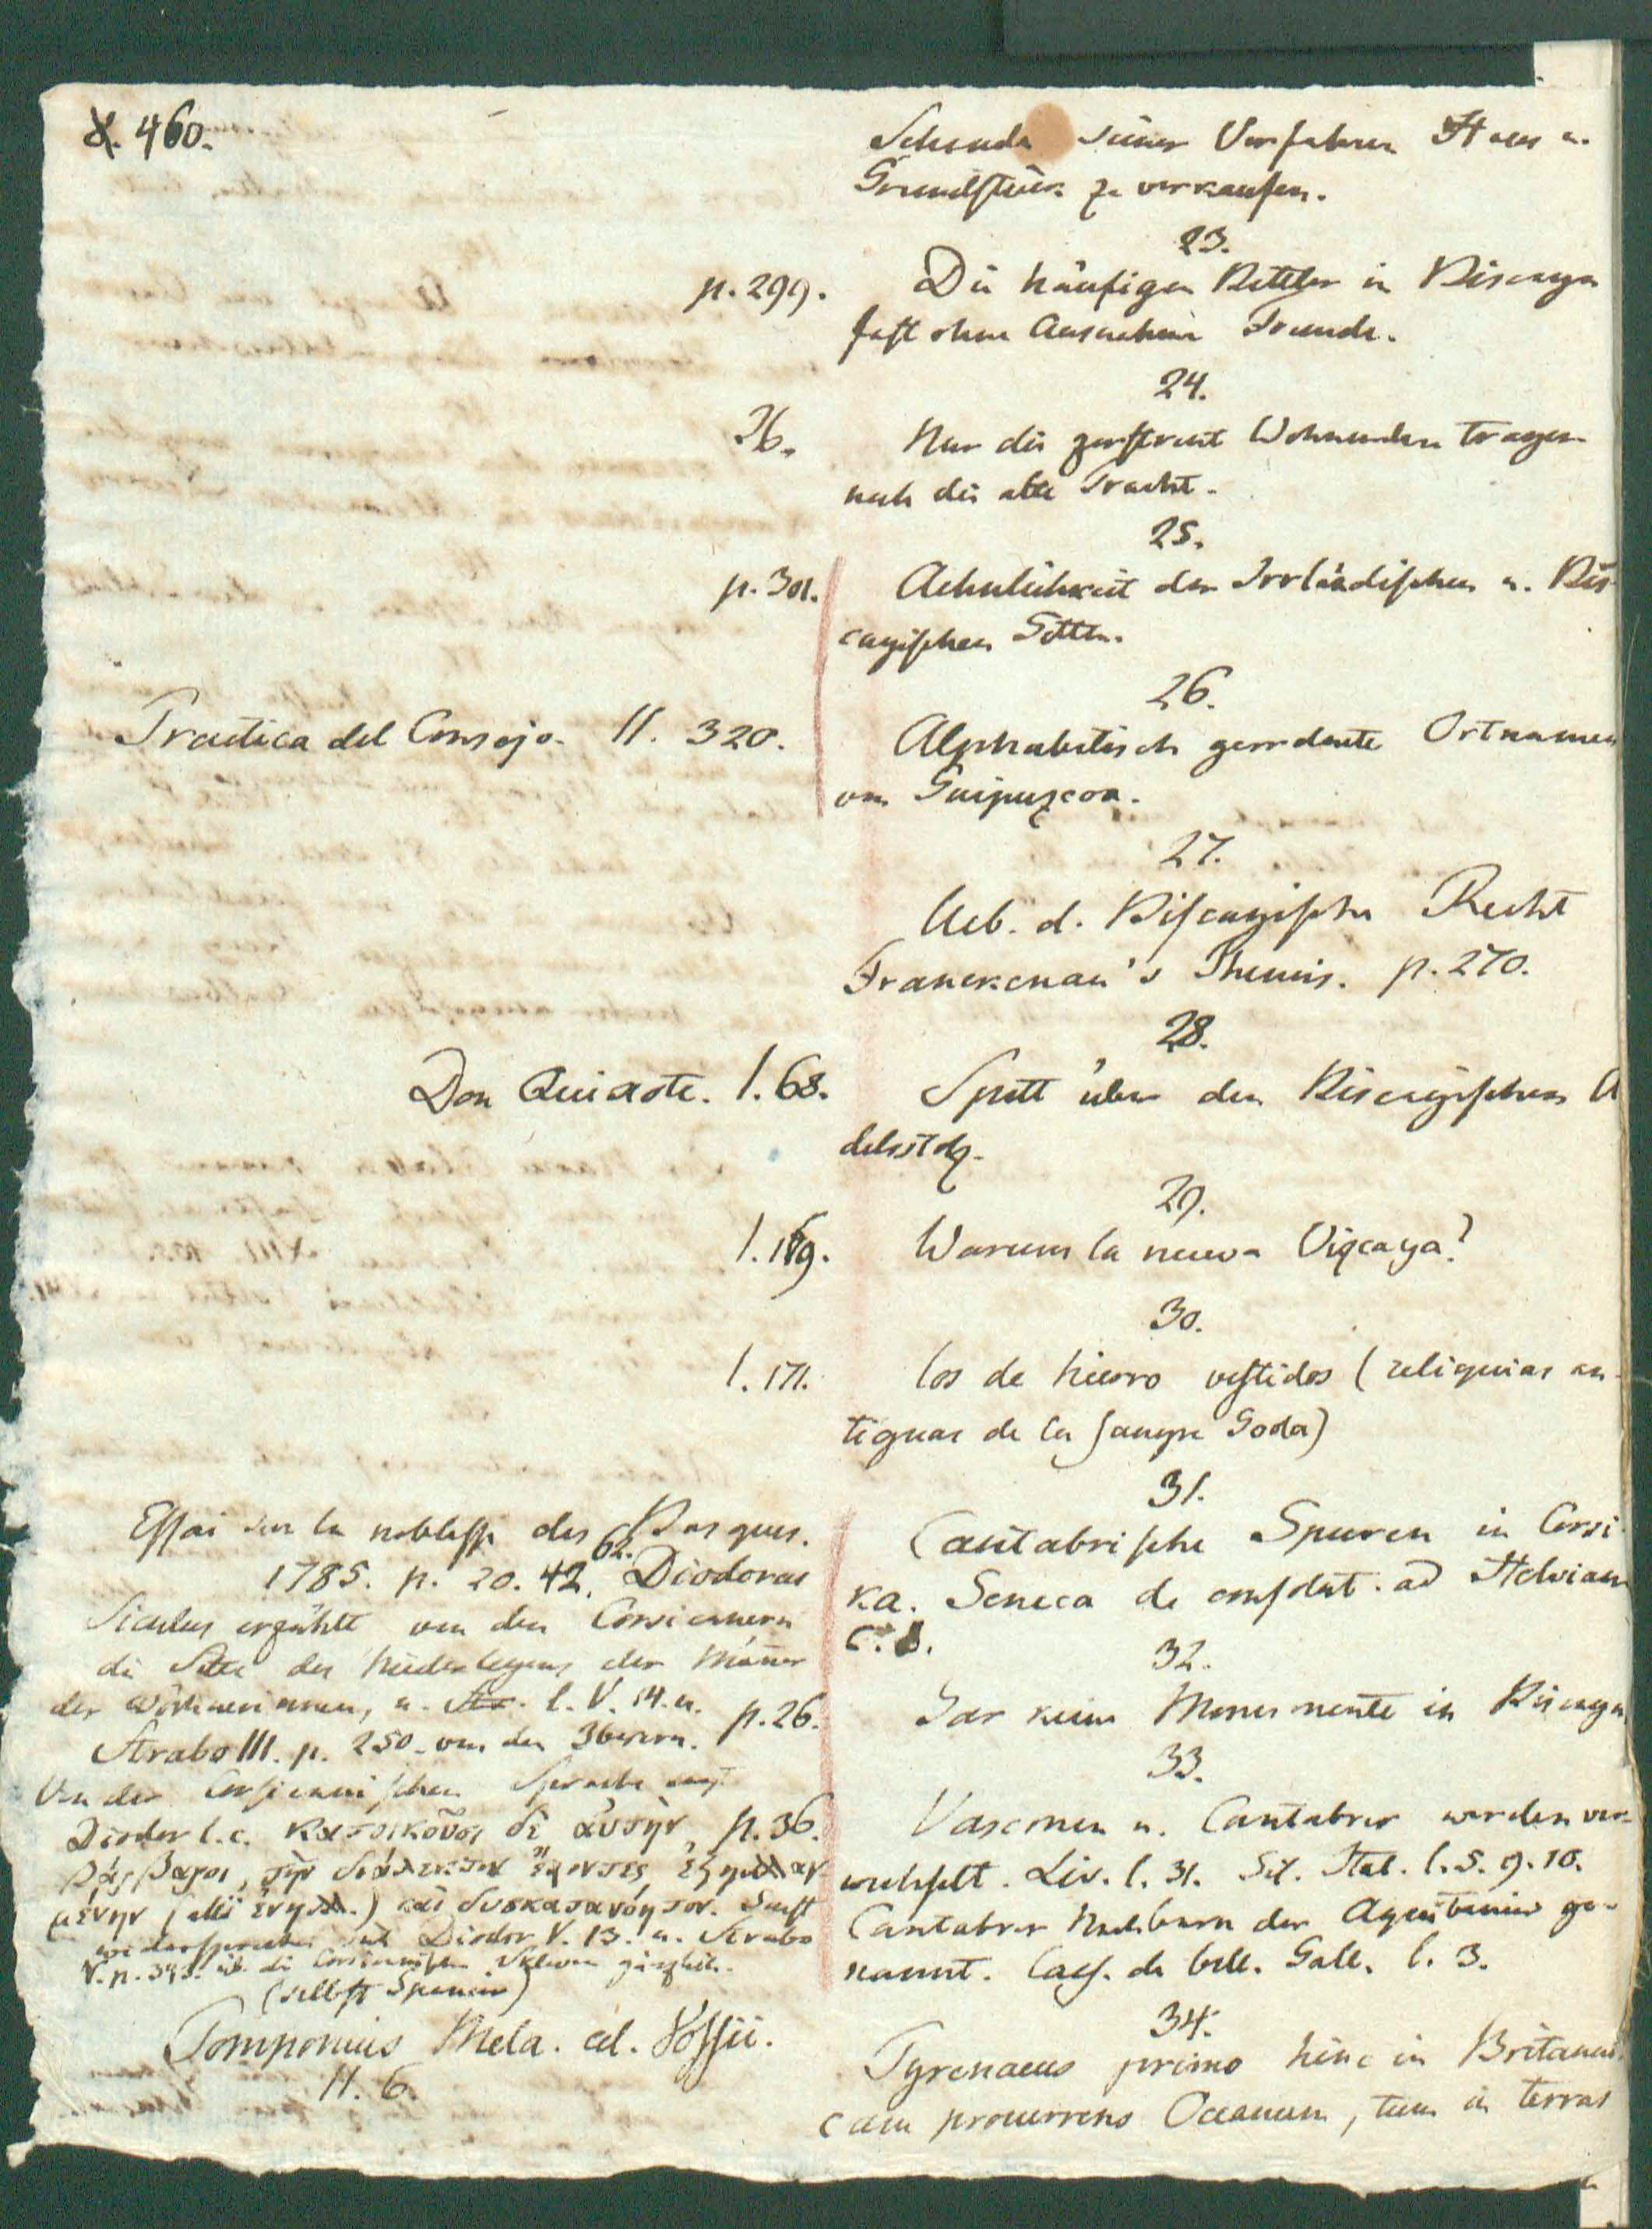 X. 460.
Schande seiner Vorfahren Haus u.
Grundstück zu verkaufen.
23.
p. 299.
Die häufigen Bettler in Biscaya
fast ohne Ausnahme Fremde.
24.
Ib.
Nur die zerstreut Wohnenden tragen
noch die alte Tracht.
25.
p. 301.
Aehnlichkeit der Irrländischen u. Bis-
cayischen Sitten.
26.
Practica del Consejo. II. 320.
Alphabetisch geordnete Ortnamen
von Guipuzcoa.
27.
Ueb. d. Biscayische Recht
Franckenau's Themis. p. 270.
28.
Don Quixote. l. 68.
Spott über den Biscayischen A
delsstolz.
29.
l. 169.
Warum la nueva Vizcaya?
30.
l. 171.
los de hierro vestidos (reliquias an-
tiguas de la sangre Goda)
31.
Essai sur la noblesse des Basques.
1785. p. 20. 42. 62. Diodorus
Siculus erzählt von den Corsicanern
die Sitte des Niederlegens der Männer
der Wöchnerinnen, u. l. V. 14. u.
Strabo III. p. 250. von den Iberern.
Cantabrische Spuren in Corsi-
ka. Seneca de consolat. ad Helviam
c. 8.
32.
p. 26.
Gar keine Monumente in Biscaya
33.
Von der Corsicanischen Sprache sagt
Diodor l. c. κατοικοῦσι δὲ αὐτὴν
βάρβαροι, τὴν διάλεκτον ἔχοντες ἐξηλλαγ-
μένην (alii ἐνηλλ.) καὶ δυσκατανόητον. Sonst
widersprechen sich Diodor V. 13. u. Strabo
V. p. 343. üb. die Corsicanischen Sklaven gänzlich.
(selbst Spanier)
p. 36.
Vasconen u. Cantabrer werden ver-
wechselt. Liv. l. 31. Sil. Ital. l. 5. 9. 10.
Cantabrer Nachbarn der Aquitanier ge-
nannt. Caes. de bell. Gall. l. 3.
34.
Pomponius Mela. ed. Vossii.
II. 6.
Pyrenaeus primo hinc in Britanni-
cam procurrens Oceanum, tum in terras